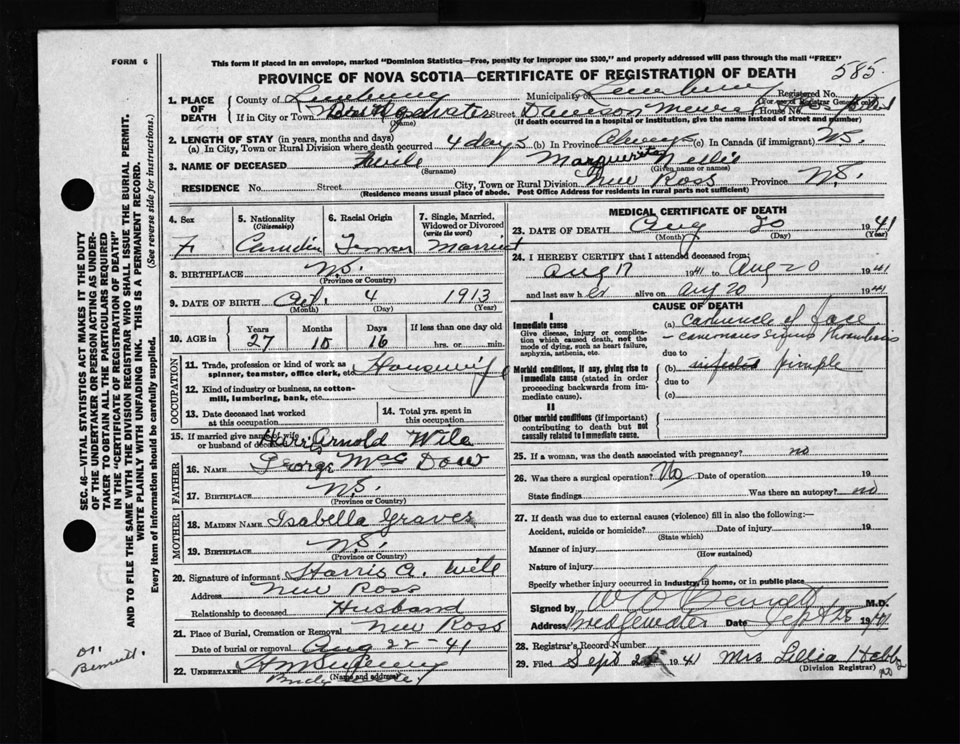 FORM 6
This form if placed in an envelope, marked "Dominion Statistics—Free, penalty for improper use $300," and properly addressed will pass through the mail "FREE"
PROVINCE OF NOVA SCOTIA—CERTIFICATE OF REGISTRATION OF DEATH 585.
1. PLACE OF DEATH
County of Lunenburg Municipality of Lunenburg Registered No.
(For use of Registrar General only)
If in City or Town Bridgewater Street Dawson Memorial Hospital House No.
(Name) (If death occurred in a hospital or institution, give the name instead of street and number)
2. LENGTH OF STAY (in years, months and days)
(a) In City, Town or Rural Division where death occurred 4 days (b) In Province Always (c) In Canada (if immigrant) N.S.
3. NAME OF DECEASED Wile Marguerite Nellie
(Surname) (Given name or names)
RESIDENCE No. Street City, Town or Rural Division New Ross Province N.S.
(Residence means usual place of abode. Post Office Address for residents in rural parts not sufficient)
SEC. 46—VITAL STATISTICS ACT MAKES IT THE DUTY
OF THE UNDERTAKER OR PERSON ACTING AS UNDER-
TAKER TO OBTAIN ALL THE PARTICULARS REQUIRED
IN THE "CERTIFICATE OF REGISTRATION OF DEATH"
AND TO FILE THE SAME WITH THE DIVISION REGISTRAR WHO SHALL ISSUE THE BURIAL PERMIT.
WRITE PLAINLY WITH UNFADING INK. THIS IS A PERMANENT RECORD.
Every item of Information should be carefully supplied. (See reverse side for instructions.)
4. Sex
F
5. Nationality
(Citizenship)
6. Racial Origin
7. Single, Married, Widowed or Divorced
(write the word)
Married
8. BIRTHPLACE N.S.
(Province or Country)
9. DATE OF BIRTH Oct. 4 1913
(Month) (Day) (Year)
10. AGE in Years Months Days If less than one day old
27 10 16 hrs. or min.
OCCUPATION
11. Trade, profession or kind of work as
spinner, teamster, office clerk, etc. Housewife
12. Kind of industry or business, as cotton-
mill, lumbering, bank, etc.
13. Date deceased last worked
at this occupation
14. Total yrs. spent in
this occupation
15. If married give name of wife
or husband of deceased Harris Arnold Wile
FATHER
16. NAME George Mac Dow
17. BIRTHPLACE N.S.
(Province or Country)
MOTHER
18. MAIDEN NAME Isabella Graves
19. BIRTHPLACE N.S.
(Province or Country)
20. Signature of informant Harris A. Wile
Address New Ross
Relationship to deceased Husband
21. Place of Burial, Cremation or Removal New Ross
Date of burial or removal Aug 22 - 41
22. UNDERTAKER
(Name and address)
Bennett.
MEDICAL CERTIFICATE OF DEATH
23. DATE OF DEATH Aug 20 1941
(Month) (Day) (Year)
24. I HEREBY CERTIFY that I attended deceased from:
Aug 17 1941 to Aug 20 1941
and last saw her alive on Aug 20 1941
CAUSE OF DEATH
I
Immediate cause
Give disease, injury or complica-
tion which caused death, not the
mode of dying, such as heart failure,
asphyxia, asthenia, etc.
(a) carbuncle of face
- cavernous sinus thrombosis
due to
Morbid conditions, if any, giving rise to
immediate cause (stated in order
proceeding backwards from im-
mediate cause).
(b) infected pimple
due to
(c)
II
Other morbid conditions (if important)
contributing to death but not
causally related to immediate cause.
25. If a woman, was the death associated with pregnancy? no
26. Was there a surgical operation? No Date of operation 19
State findings Was there an autopsy? no
27. If death was due to external causes (violence) fill in also the following:—
Accident, suicide or homicide? Date of injury 19
(State which)
Manner of injury
(How sustained)
Nature of injury
Specify whether injury occurred in industry, in home, or in public place
Signed by M.D.
Address Bridgewater Date Sept 25 1941
28. Registrar's Record Number
29. Filed Sept 1941 Mrs Lillia Hebb
(Division Registrar)